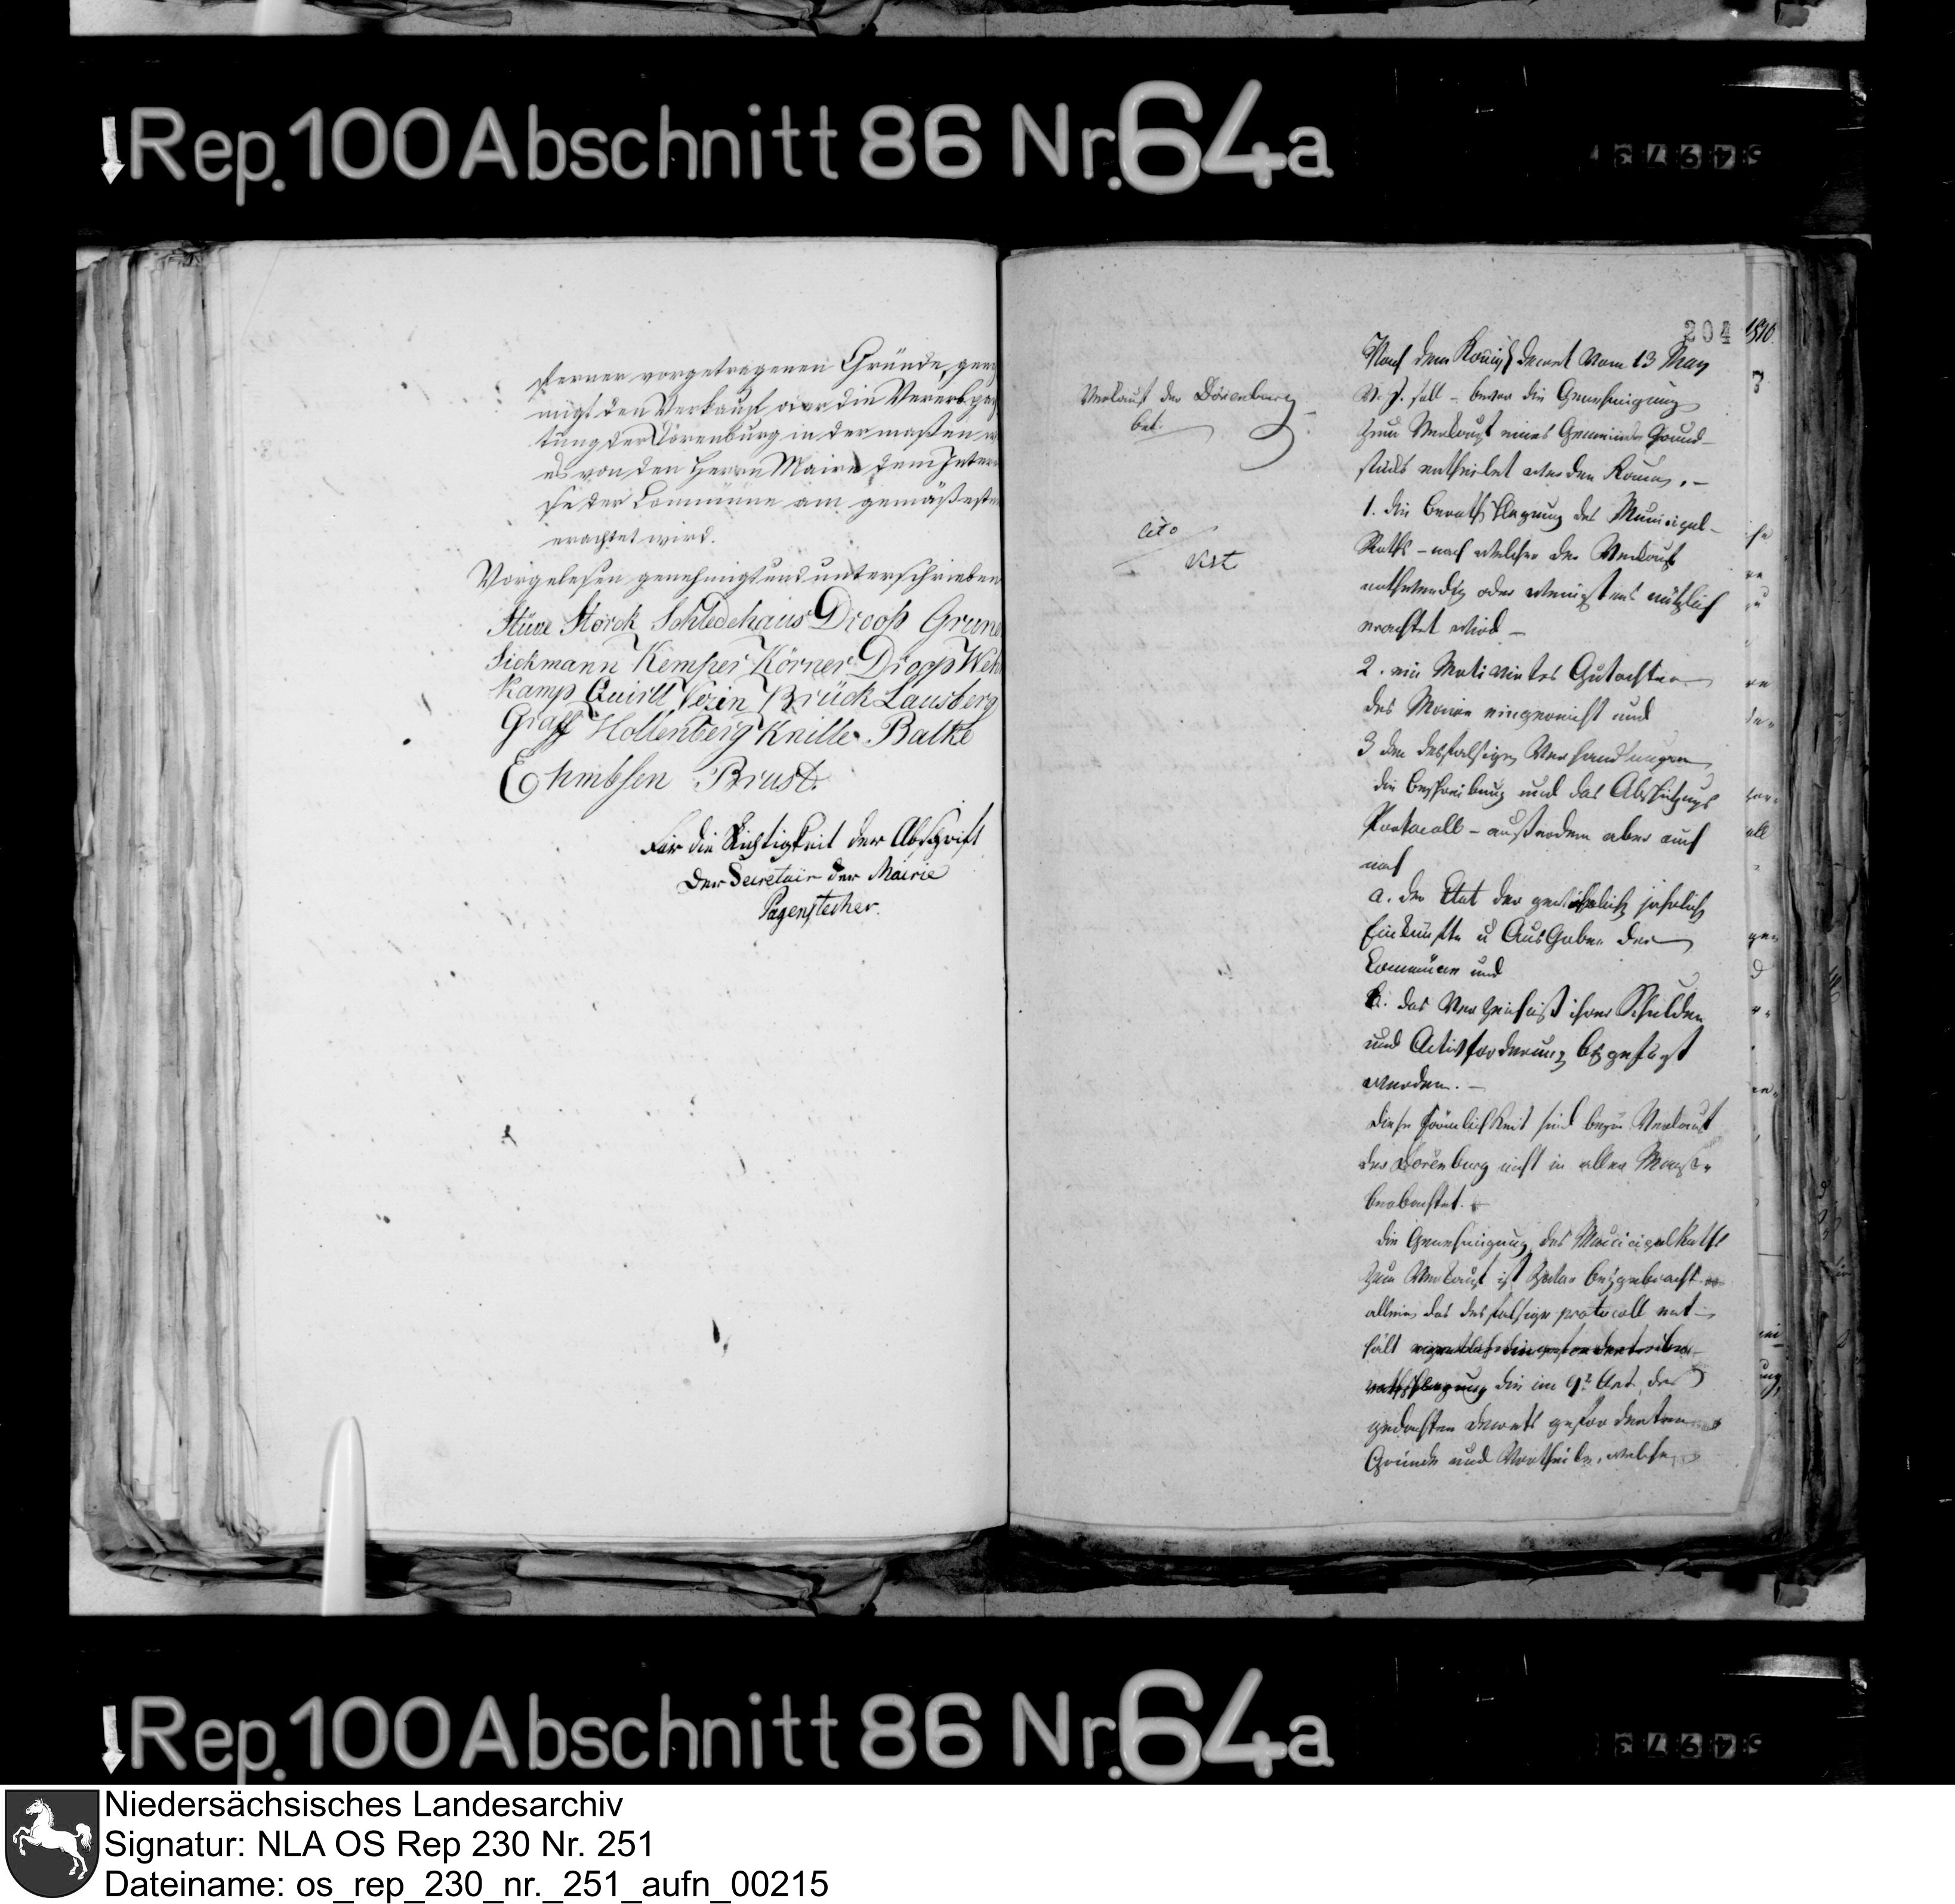 Rep. 100 Abschnitt 86 Nr. 64a
ferner vorgetragenen Gründe, geneh
migt den Verkauf oder die Vererbpach
tung der Dörenburg in dermaßen w
es von den Herrn Maire dem Interes
se der Commüne am gemäßesten
erachtet wird.
Vorgelesen genehmigt und unterschrieben
Stüve Storck Schledehaus Droop Grune
Sickmann Kemper Körner Droop Weh
kamp Quirll Vezin Brück Lausberg
Graff Hollenberg Knille Balke
Ehmbsen Brust.
Für die Richtigkeit der Abschrift
Der Secretair der Mairie
Pagenstecher.
204
1810.
Verkauf der Dörenburg
bet.
cito
Nach dem Königl Decret vom 13 May
v. J. soll – bevor die Genehmigung
zum Verkauf eines Gemeinde Grund-
stücks ertheilet werden kann, –
1. die Berathschlagung des Municipal-
Raths – nach welcher der Verkauf
nothwendig oder wenigstens nützlich
erachtet wird –
2. ein Motivirtes Gutachten
des Maire eingereicht und
3 den desfalsigen Verhandlungen
die Beschreibung und das Abschätzungs
Protocoll – ausserdem aber auch
noch
a. der Etat der gewöhnlich jährlich
Einkünfte u Ausgaben der
Commüne und
b. das Verzeichniß ihrer Schulden
und Activforderung beygefügt
werden. –
Diese Förmlichkeit sind beym Verkauf
der Dörenburg nicht in aller Maaße
beobachtet.
die Genehmigung des Municipal Raths
zum Verkauf ist zwar beygebracht
allein das desfalsige protocoll ent-
hält
die im 9t Art. des
gedachten Decrets geforderten
Gründe und Vortheile, welche
Rep. 100 Abschnitt 86 Nr. 64a
Niedersächsisches Landesarchiv
Signatur: NLA OS Rep 230 Nr. 251
Dateiname: os_rep_230_nr._251_aufn_00215